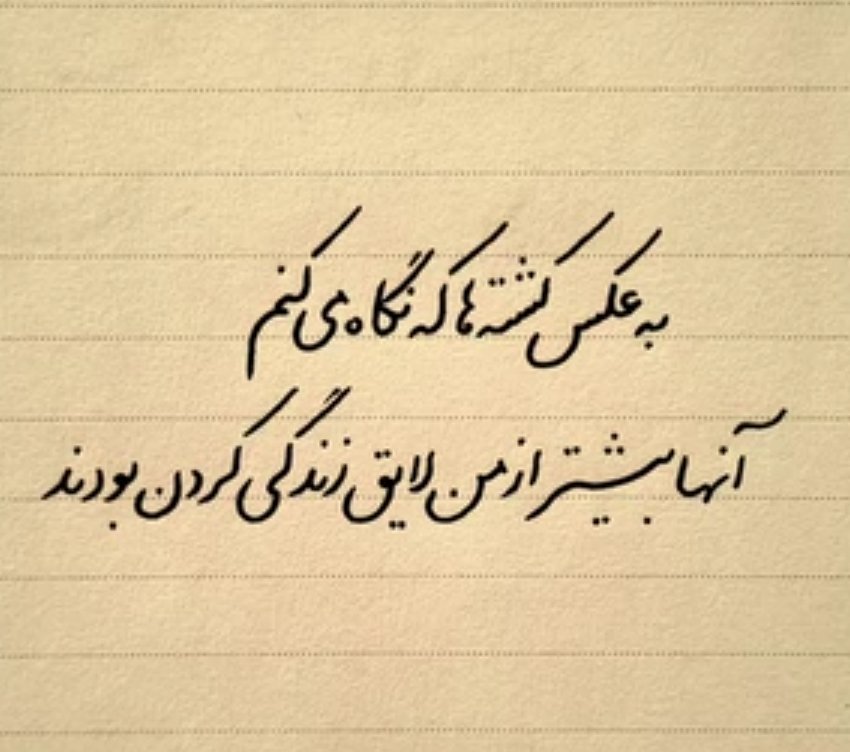 به عکس کشته ها که نگاه می کنم
آنها بیشتر از من لایق زندگی کردن بودند